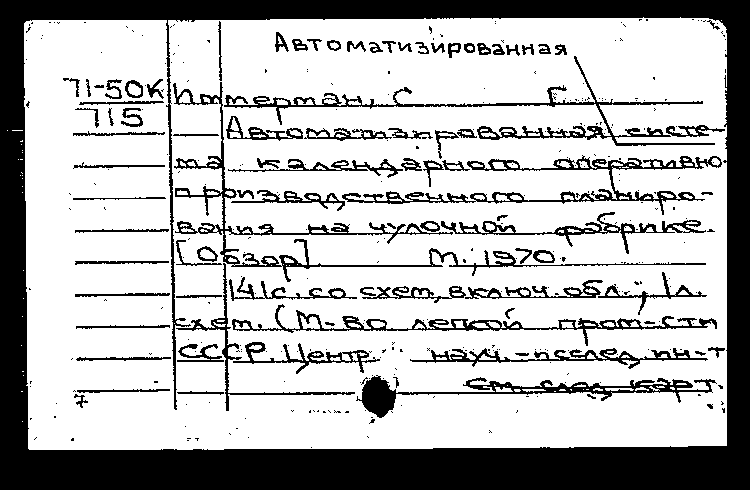 Автоматизированная
71-50К
715
Иттерман, С Г
Автоматизированная систе-
ма календарного оперативно-
производственного планиро-
вания на чулочной фабрике.
[Обзор] М., 1970.
141с. со схем, включ. обл.; 1л.
схем. (М-во легкой пром-сти
СССР. Центр. науч.-исслед. ин-т
см. след. карт.
7